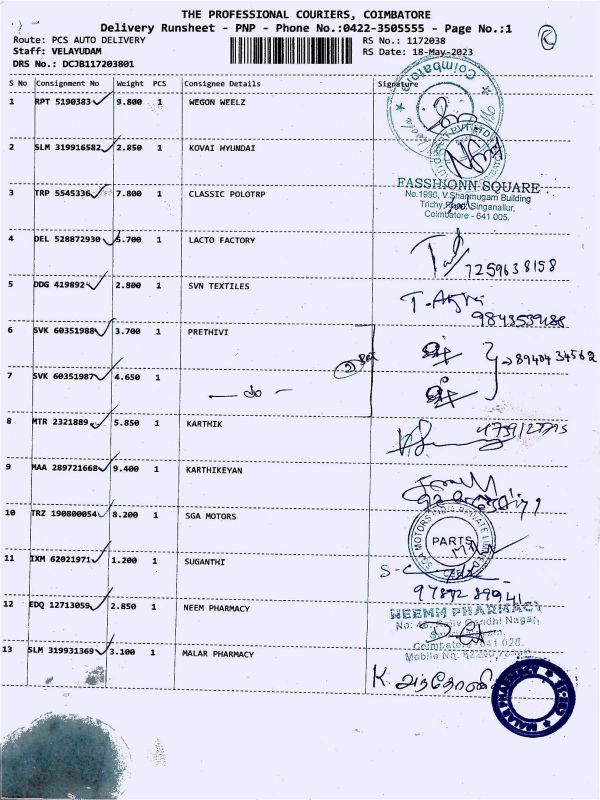 THE PROFESSIONAL COURIERS, COIMBATORE
Delivery Runsheet - PNP - Phone No.:0422-3505555 - Page No.:1
Route: PCS AUTO DELIVERY
Staff: VELAYUDAM
DRS No.: DCJB117203801
RS No.: 1172038
RS Date: 18-May-2023
S No Consignment No Weight PCS Consignee Details Signature
1 RPT 5190383 9.800 1 WEGON WEELZ
Coimbatore
2 SLM 319916582 2.850 1 KOVAI HYUNDAI
3 TRP 5545336 7.800 1 CLASSIC POLOTRP
FASSHIONN SQUARE
No.1990, V.Shanmugam Building
Trichy Road, Singanallur,
Coimbatore - 641 005.
4 DEL 528872930 5.700 1 LACTO FACTORY
7259638158
5 DDG 419892 2.800 1 SVN TEXTILES
6 SVK 60351988 3.700 1 PRETHIVI
8940434562
7 SVK 60351987 4.650 1
8 MTR 2321889 5.850 1 KARTHIK
9 MAA 289721668 9.400 1 KARTHIKEYAN
10 TRZ 190800054 8.200 1 SGA MOTORS
SGA MOTORS INDIA PRIVATE LIMITED
PARTS
11 IXM 62021971 1.200 1 SUGANTHI
12 EDQ 12713059 2.850 1 NEEM PHARMACY
NEEMM PHARMACY
Gandhi Nagar,
13 SLM 319931369 3.100 1 MALAR PHARMACY
MALAR PHARMACY